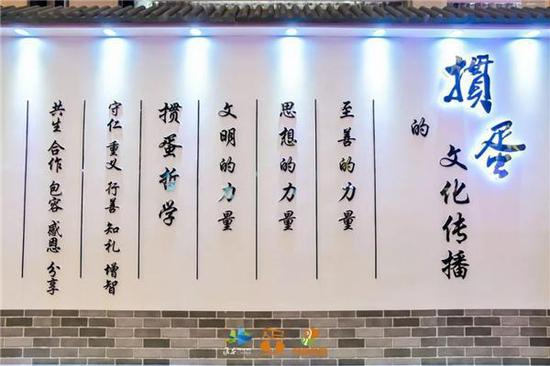 掼蛋
的
文化传播
至善的力量
思想的力量
文明的力量
掼蛋哲学
守仁 重义 行善 知礼 增智
共生 合作 包容 感恩 分享